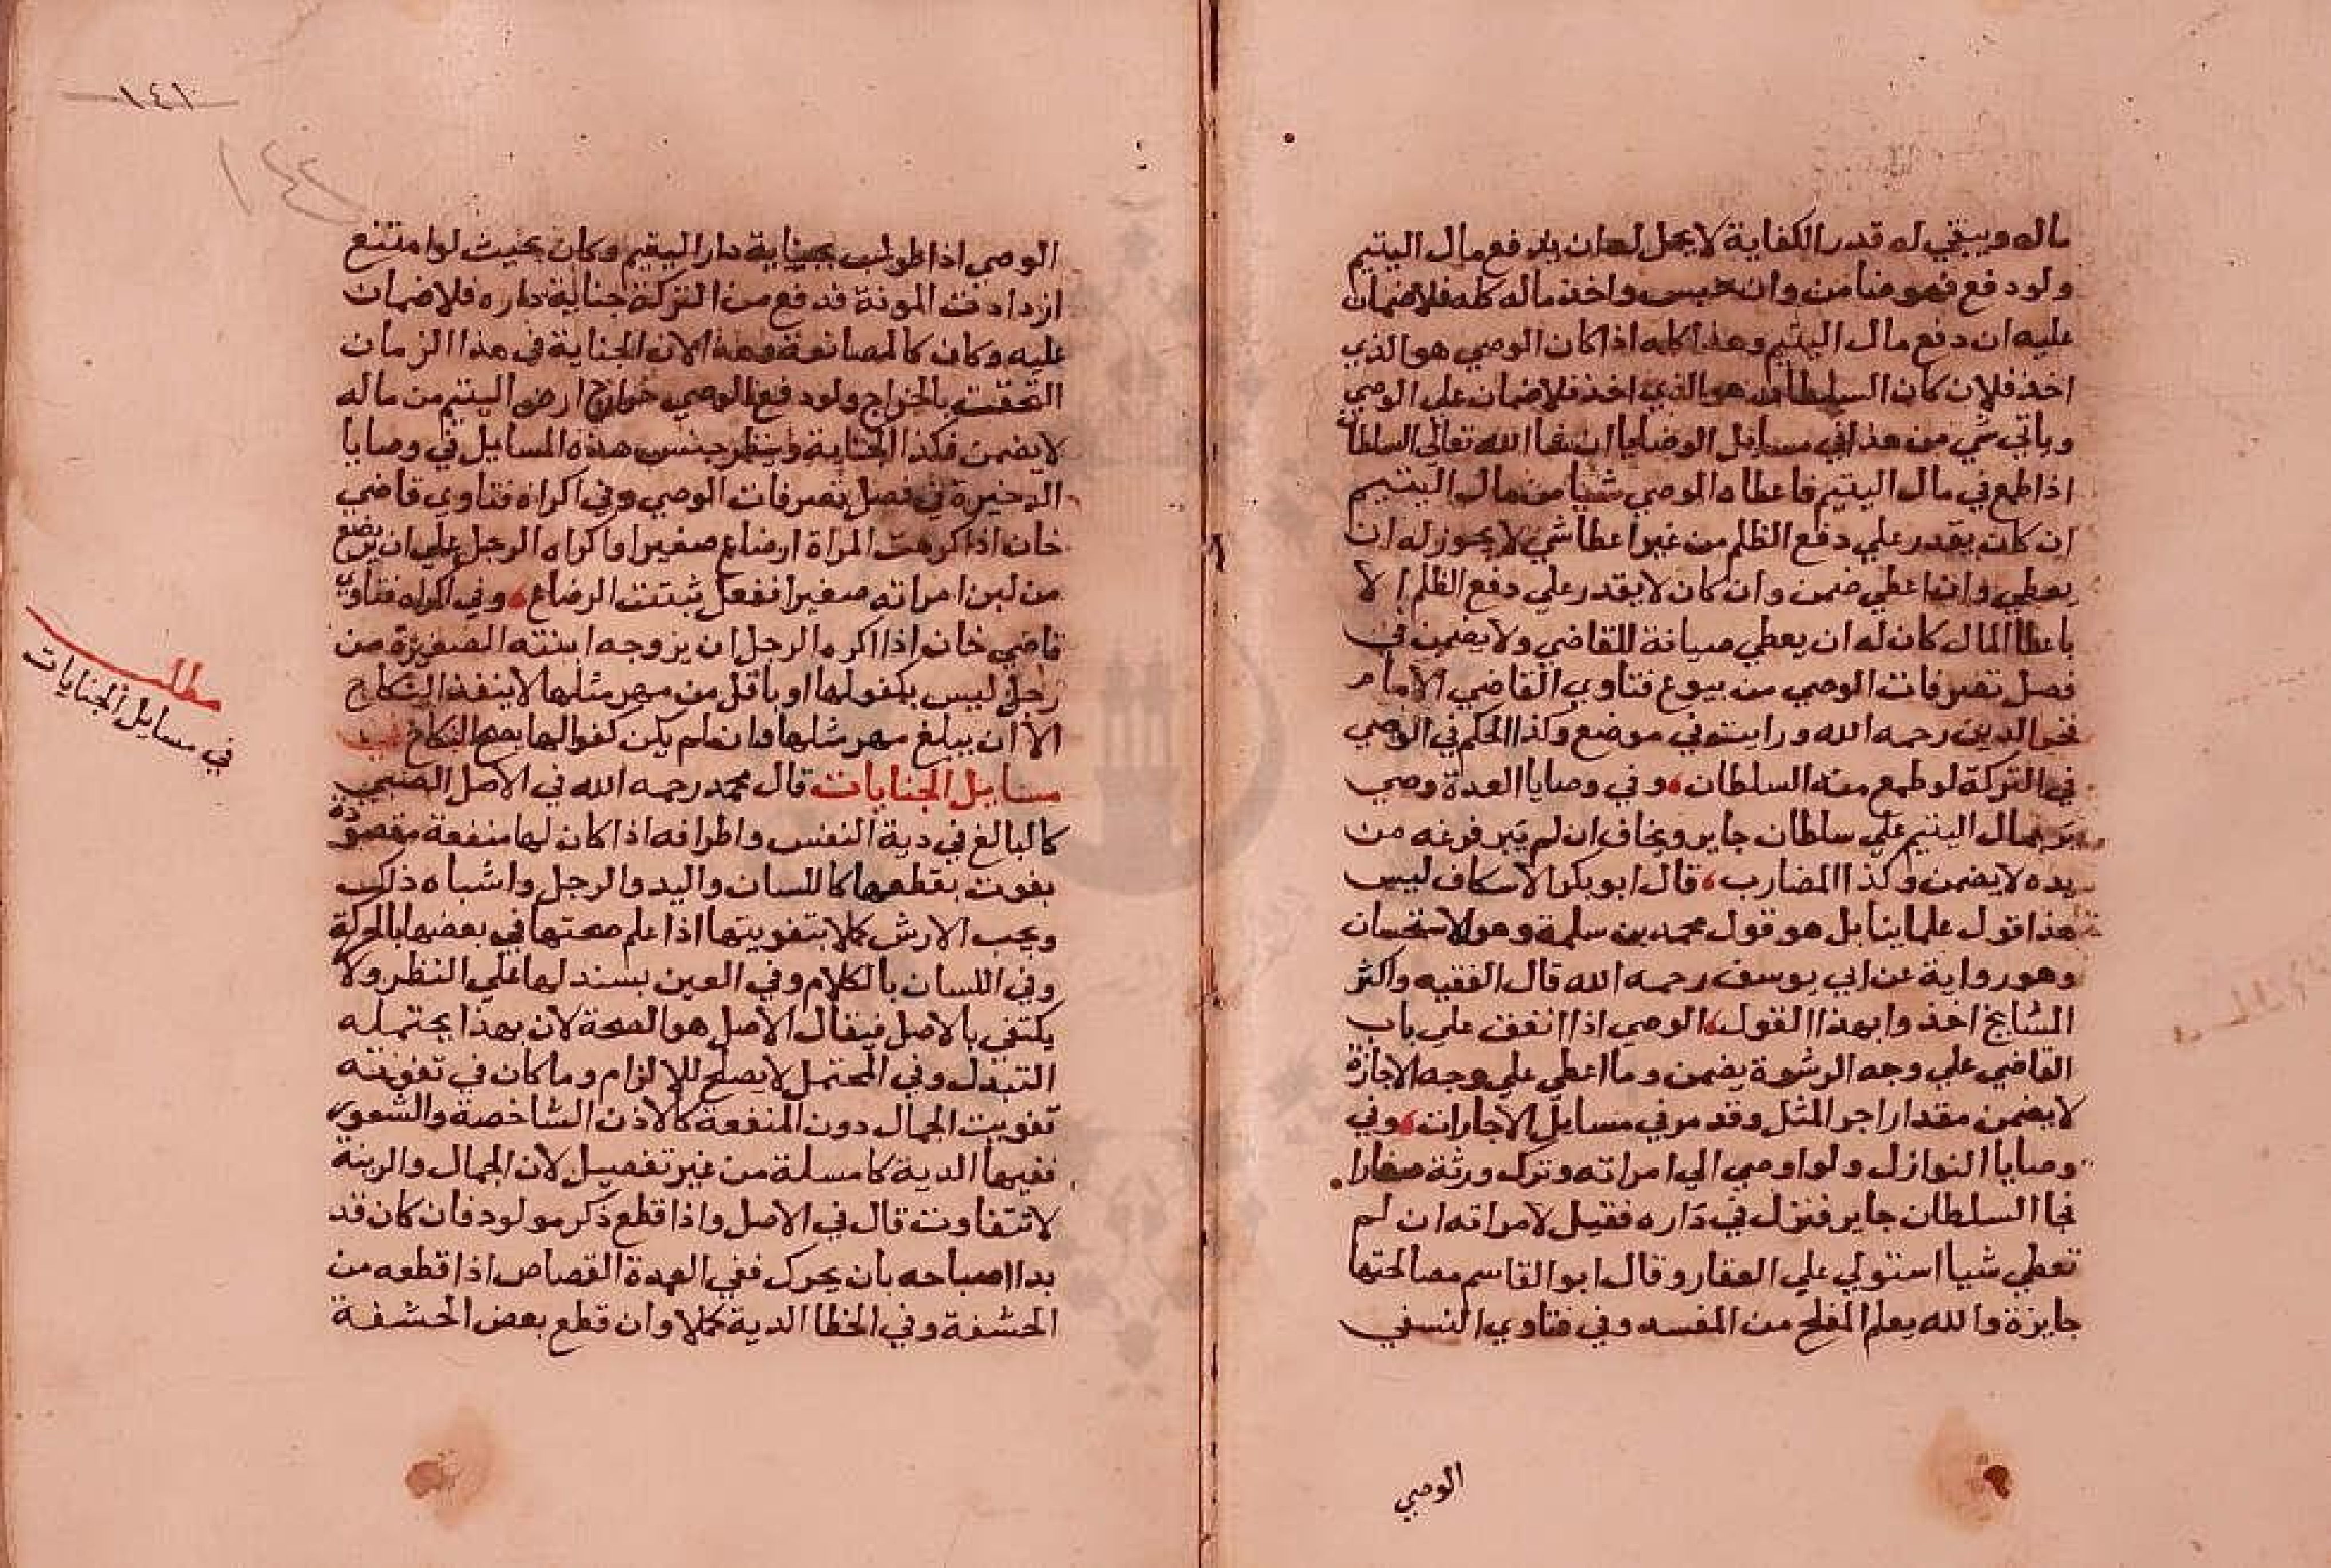 ماله ويبقي له قدر الكفاية لا يحل له ان يدفع مال اليتيم
ولو دفع فهو ضامن وان حبس واخذ ماله كله فلا ضمان
عليه ان دفع مال اليتيم وهذا كله اذا كان الوصي هو الذي
اخذ فلان كان السلطان هو الذي اخذ فلا ضمان علي الوصي
وياتي شي من هذا في مسايل الوصايا ان شا الله تعالي السلطان
اذا طمع في مال اليتيم فاعطاه الوصي شيا من مال اليتيم
ان كان يقدر علي دفع الظلم من غير اعطا شي لا يجوز له ان
يعطي وان اعطي ضمن وان كان لا يقدر علي دفع الظلم الا
باعطا المال كان له ان يعطي صيانة للقاضي ولا يضمن في
فصل تصرفات الوصي من بيوع فتاوي القاضي الامام
فخر الدين رحمه الله ورايت في موضع وكذا الحكم في الوصي
في التركة لو طمع منه السلطان وفي وصايا العدة وصي
مر بمال اليتيم علي سلطان جاير ويخاف ان لم يبر فرغه من
يده لا يضمن وكذا المضارب قال ابو بكر الاسكاف ليس
هذا قول علماينا بل هو قول محمد بن سلمة وهو الاستحسان
وهو رواية عن ابي يوسف رحمه الله قال الفقيه واكثر
المشايخ اخذوا بهذا القول الوصي اذا انفق علي باب
القاضي علي وجه الرشوة يضمن وما اعطي علي وجه الاجارة
لا يضمن مقدار اجر المثل وقد مر في مسايل الاجارات وفي
وصايا النوازل ولو اوصي الي امراته وترك ورثة صغارا
فجا السلطان جاير فنزل في داره فقيل لامراته ان لم
تعطي شيا استولي علي العقار وقال ابو القاسم مصالحتها
جايزة والله يعلم المفلح من المفسد وفي فتاوي النسفي
الوصي
١٤١
١٤٢
الوصي اذا طولب بجناية دار اليتيم وكان بحيث لو امتنع
ازدادت المونة فدفع من التركة جناية داره فلا ضمان
عليه وكان كالمصانعة وهذا لان الجناية في هذا الزمان
التحقت بالخراج ولو دفع الوصي خراج ارض اليتيم من ماله
لا يضمن فكذا الجناية وينظر جنس هذه المسايل في وصايا
الدخيرة في فصل تصرفات الوصي وفي اكراه فتاوي قاضي
خان اذا اكرهت المراة ارضاع صغير او اكراه الرجل علي ان يرضع
من لبن امراته صغيرا ففعل ثبتت الرضاع وفي اكراه فتاوي
قاضي خان اذا اكره الرجل ان يزوجه ابنته الصغيرة من
رجل ليس بكفو لها او باقل من مهر مثلها لا ينفذ النكاح
الا ان يبلغ مهر مثلها وان لم يكن كفوا لها يصح النكاح في
مسايل الجنايات قال محمد رحمه الله في الاصل الصبي
كالبالغ في دية النفس واطرافه اذا كان لها منفعة مقصودة
يفوت بقطعها كاللسان واليد والرجل واشباه ذلك
ويجب الارش كملا بتفويتها اذا علم صحتها في بعضها بالحركة
وفي اللسان بالكلام وفي العين بسند لها علي النظر ولا
يكتفي بالاصل فيقال الاصل هو الصحة لان بهذا يحتمله
التبدل وفي المحتمل لا يصلح للالزام وما كان في تفويته
تفويت الجمال دون المنفعة كالاذن الشاخصة والشعور
ففيها الدية كامسلة من غير تفصيل لان الجمال والزينة
لا تتفاوت قال في الاصل واذا قطع ذكر مولود فان كان قد
بدا اصباحه بان يحرك ففي العمدة القصاص اذا قطعه من
الحشفة وفي الخطا الدية كملا وان قطع بعض الحشفة
مطلب
في مسايل الجنايات